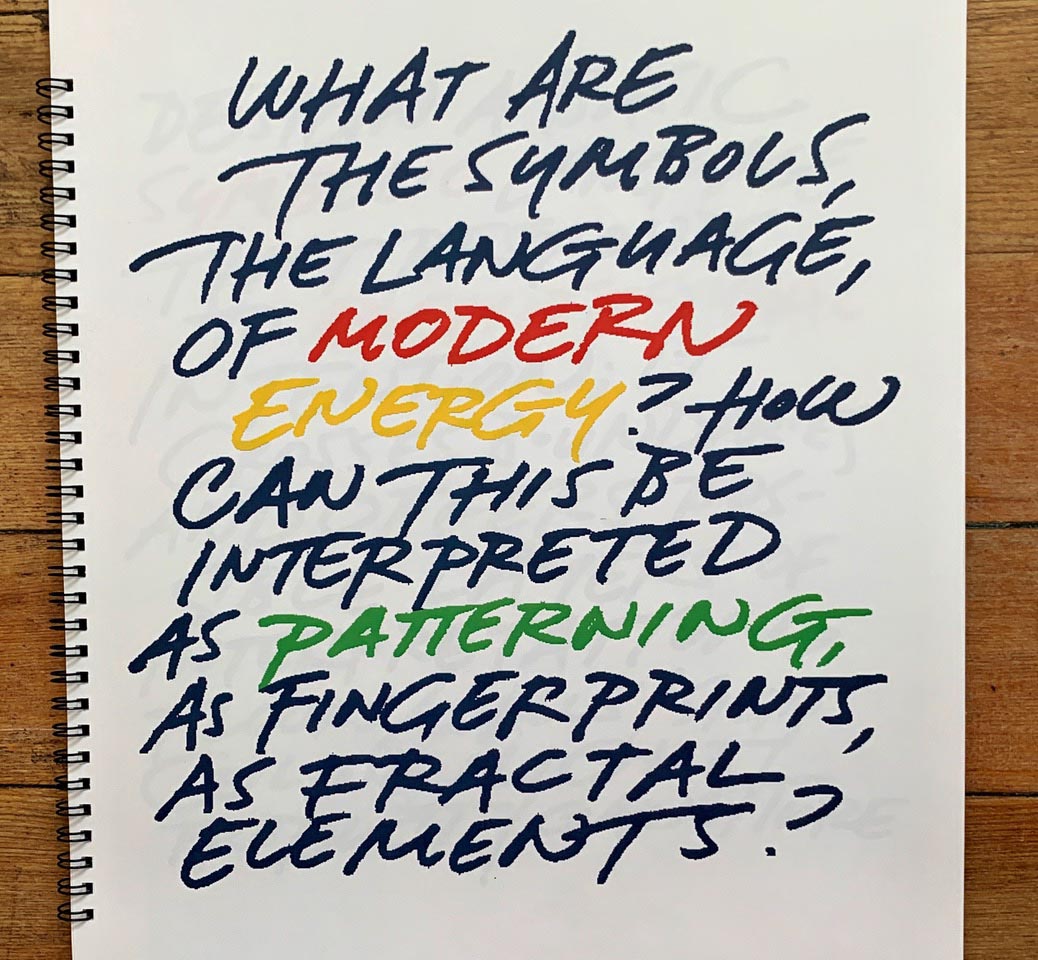 WHAT ARE
THE SYMBOLS,
THE LANGUAGE,
OF MODERN
ENERGY? HOW
CAN THIS BE
INTERPRETED
AS PATTERNING,
AS FINGERPRINTS,
AS FRACTAL
ELEMENTS?